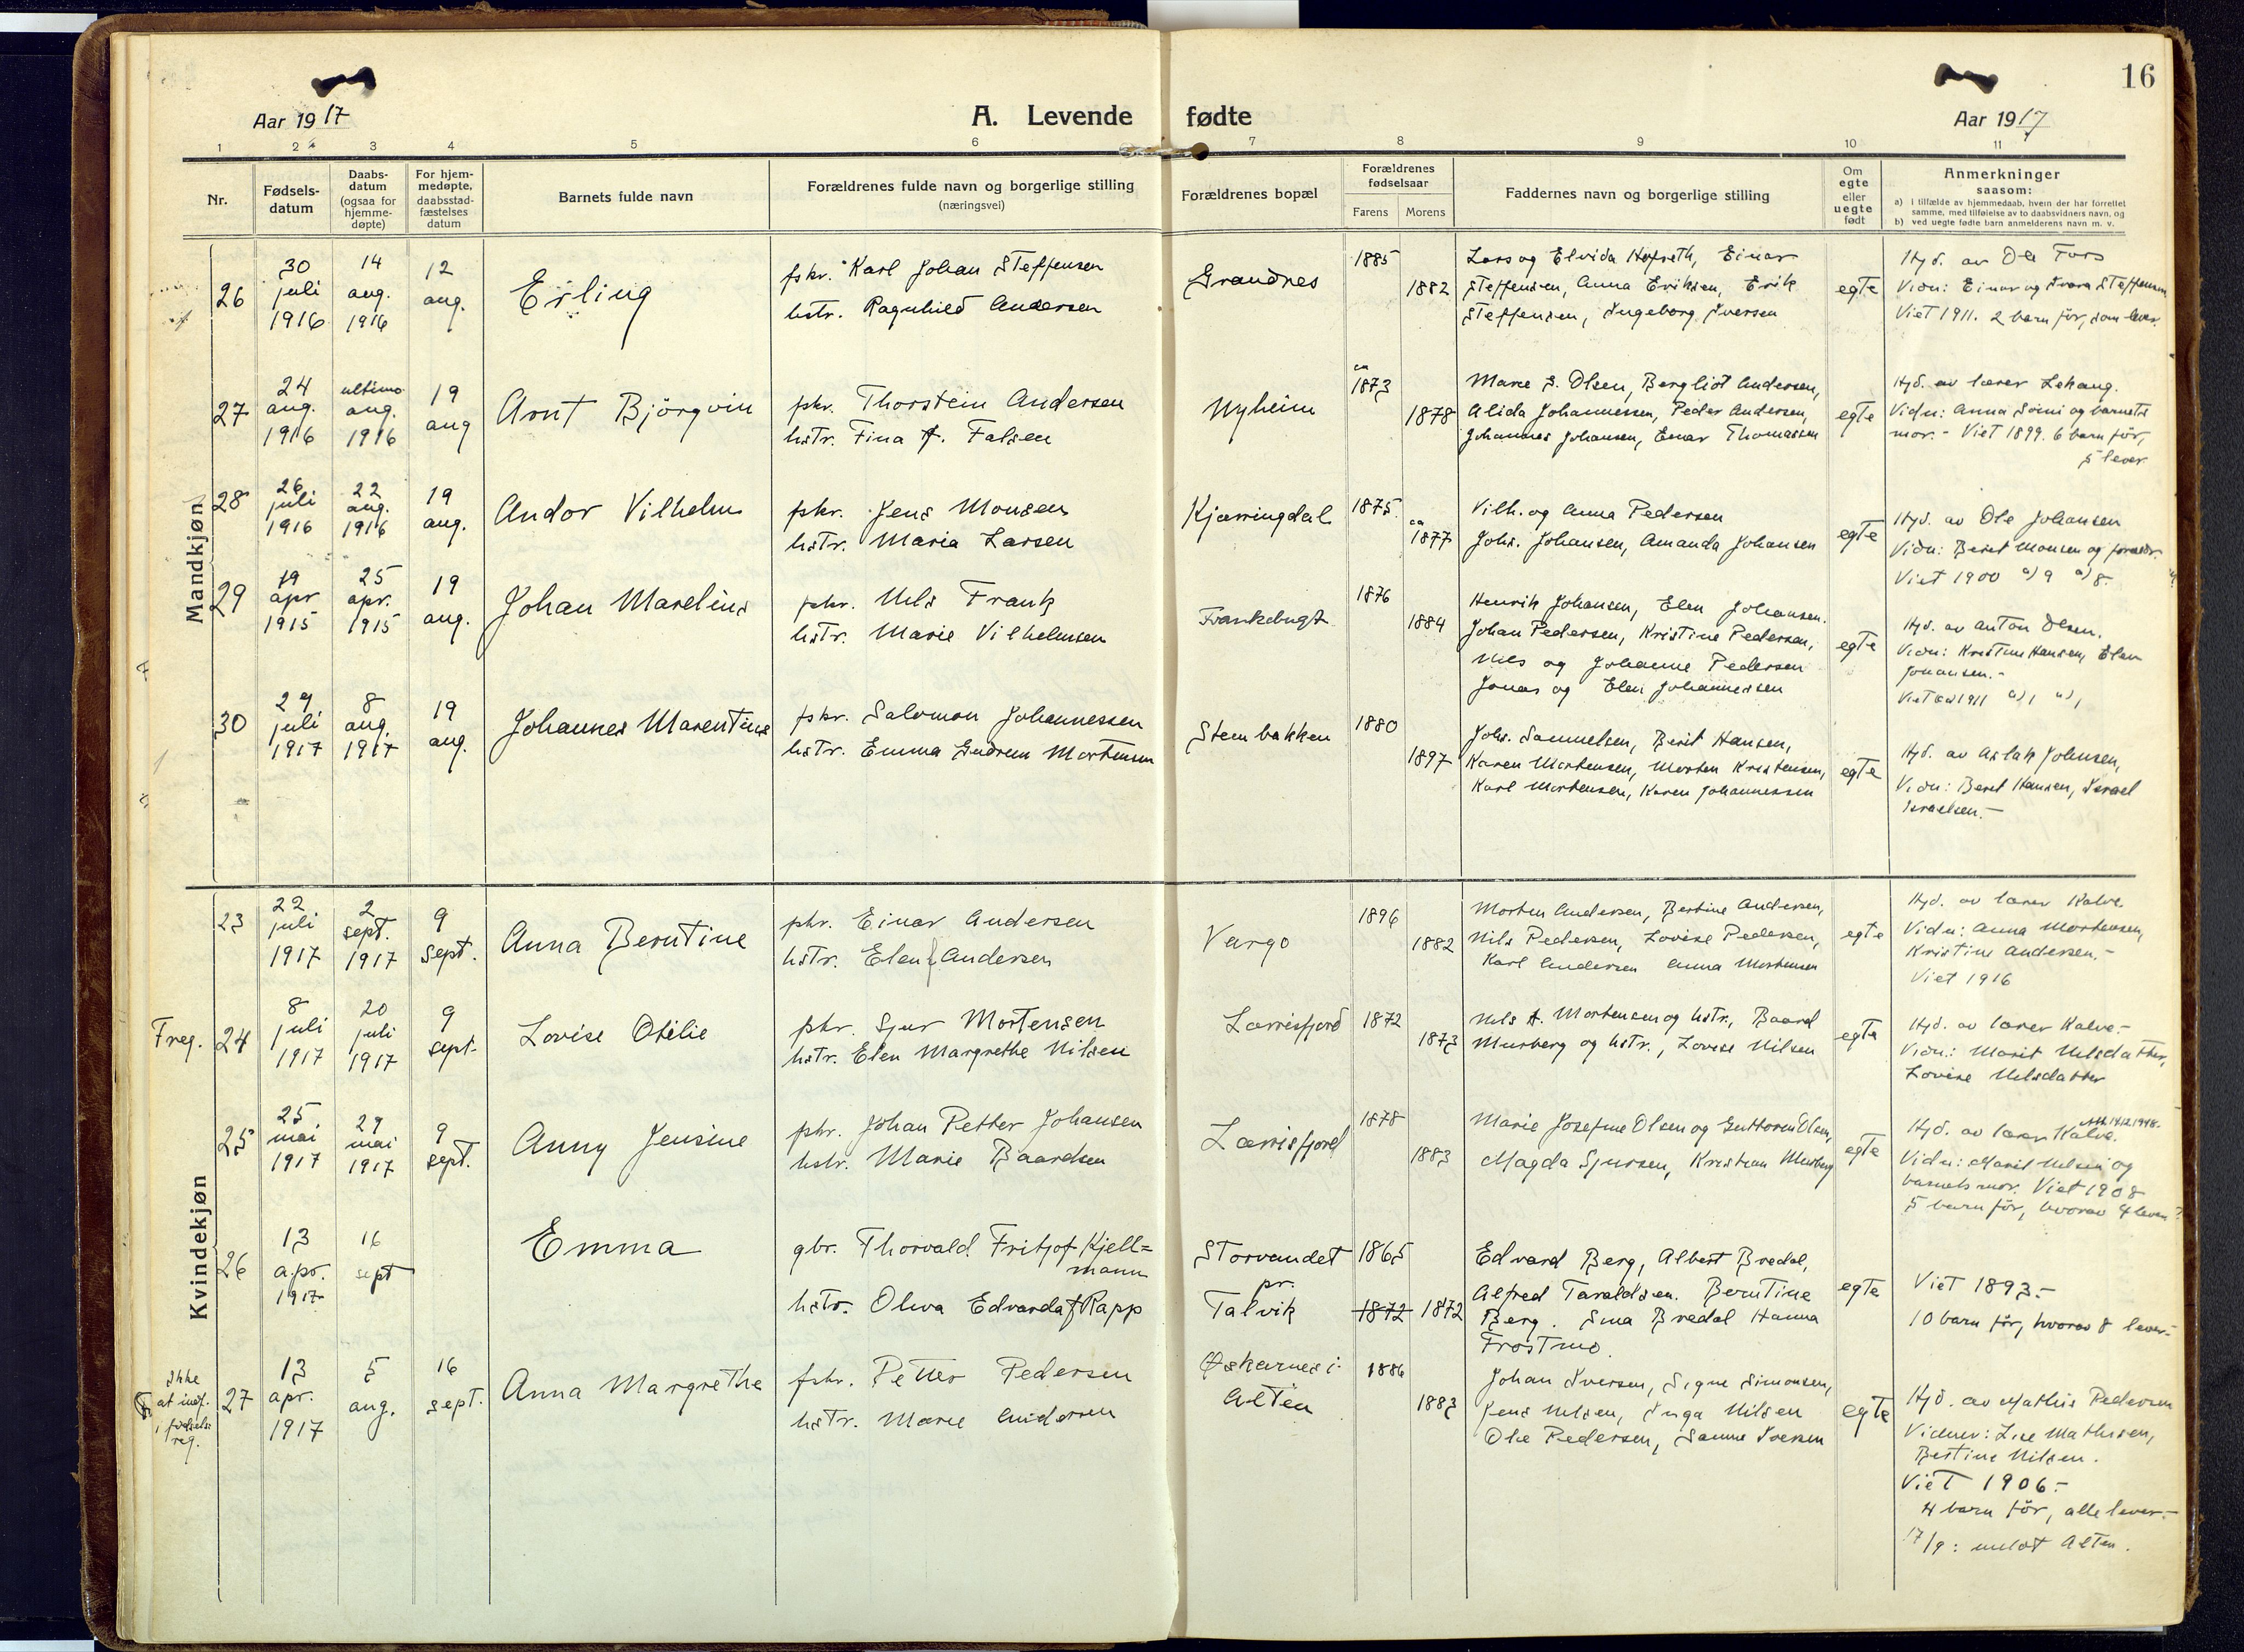 16
Aar 1917
A. Levende fødte
Aar 1917
1 2 3 4 5 6 7 8 9 10 11
Nr.
Fødsels-
datum
Daabs-
datum
(ogsaa for
hjemme-
døpte)
For hjem-
medøpte,
daabsstad-
fæstelses
datum
Barnets fulde navn
Forældrenes fulde navn og borgerlige stilling
(næringsvei)
Forældrenes bopæl
Forældrenes
fødselsaar
Farens
Morens
Faddernes navn og borgerlige stilling
Om
egte
eller
uegte
født
Anmerkninger
saasom:
a) i tilfælde av hjemmedaab, hvem der har forrettet
samme, med tilføielse av to daabsvidners navn, og
b) ved uegte fødte barn anmelderens navn m. v.
Mandkjøn
26
30
juli
1916
14
aug.
1916
12
aug.
Erling
fskr. Karl Johan Steffensen
hstr. Ragnhild Andersen
Grandnes
1885
1882
Lars og Elvida Hofseth, Einar
Steffensen, Anna Eriksen, Erik
Steffensen, Ingeborg Iversen
egte
Hjd. av Ole Fors
Vidn: Einar og Steffensen
Viet 1911. 2 barn för, som lever.
27
24
aug.
1916
ultimo
aug.
1916
19
aug
Arnt Björgvin
fskr. Thorstein Andersen
hstr. Fina F. Falsen
Nyheim
ca
1873
1878
Marie S. Olsen, Bergliot Andersen,
Alida Johannessen, Peder Andersen,
Johannes Johansen, Einar Thomassen
egte
Hjd. av lærer Lehaug.
Vidn: Anna Somi og barnets
mor. - Viet 1899. 6 barn för,
5 lever.
28
26
juli
1916
22
aug.
1916
19
aug.
Andor Vilhelm
fskr. Jens Monsen
hstr. Maria Larsen
Kjærringdal
1875
ca
1877
Vilh. og Anna Pedersen
Johs. Johansen, Amanda Johansen
egte
Hjd. av Ole Johansen
Vidn: Beret Monsen og
Viet 1900 a) 9 a) 8.
29
19
apr
1915
25
apr.
1915
19
aug.
Johan Marelius
fskr. Nils Frank
hstr. Marie Vilhelmsen
Frankebugt
1876
1884
Henrik Johansen, Elen Johansen.
Johan Pedersen, Kristine Pedersen,
Nils og Johanne Pedersen
Jonas og Elen Johannessen
egte
Hjd. av Anton Olsen.
Vidn: Kristine Hansen, Elen
Johansen.-
Viet 1911
30
29
juli
1917
8
aug.
1917
19
aug.
Johannes Marentius
fskr. Salomon Johannessen
hstr. Emma Gudrun Mortensen
Stenbakken
1880
1897
Johs. Samuelsen, Berit Hansen,
Karen Mortensen, Morten Kristensen,
Karl Mortensen, Karen Johannessen
egte
Hjd. av Aslak Johnsen,
Vidn: Beret Hansen, Israel
Israelsen.-
Kvindekjøn
23
22
juli
1917
2
sept.
1917
9
sept.
Anna Berntine
fskr. Einar Andersen
hstr. Elen f. Andersen
Vargo
1896
1882
Morten Andersen, Bertine Andersen,
Nils Pedersen, Lovise Pedersen,
Karl Andersen Anna Mortensen
egte
Hjd. av lærer Kalve
Vidn: Anna Mortensen,
Kristine Andersen.-
Viet 1916
Freg.
24
8
juli
1917
20
juli
1917
9
sept.
Lovise Otilie
fskr. Sjur Mortensen
hstr. Elen Margrethe Nilsen
Lærrisfjord
1872
1873
Nils A. Mortensen og hstr., Baard
Murberg og hstr., Lovise Nilsen
egte
Hjd. av lærer Kalve.-
Vidn.: Marit Nilsdatter,
Lovise Nilsdatter
25
25
mai
1917
29
mai
1917
9
sept.
Anny Jensine
fskr. Johan Petter Johansen
hstr. Marie Baardsen
Lærrisfjord
1878
1883
Marie Josefine Olsen og Guttorm Olsen,
Magda Sjursen, Kristian Murberg
egte
Att. 14.12.1948.
Hjd. av lærer Kalve.
Vidn: Marit Nilsen og
barnets mor. Viet 1908
5 barn för, hvorav 4 lever
26
13
apr.
1917
16
sept
Emma
gbr. Thorvald Fritjof Kjell=
mann
hstr. Oliva Edvarda f Rapp
Storvandet
pr.
Talvik
1865
1872 1872
Edvard Berg, Albert Bredal,
Alfred Taraldsen. Berntine
Berg. Sina Bredal Hanna
Frostmo.
egte
Viet 1893.-
10 barn för, hvorav 8 lever.-
Ikke
at indf.
i fødsels-
reg.
27
13
apr.
1917
5
aug.
16
sept.
Anna Margrethe
fskr. Petter Pedersen
hstr. Marie Andersen
Øskarnes i
Alten
1886
1883
Johan Iversen, Signe Simonsen,
Jens Nilsen, Inga Nilsen
Ole Pedersen, Sanna Iversen
egte
Hjd. av Mathis Pedersen
Vidner: Lise Mathisen,
Bertine Nilsen.
Viet 1906.-
4 barn för, alle lever.-
17/9: meldt Alten.